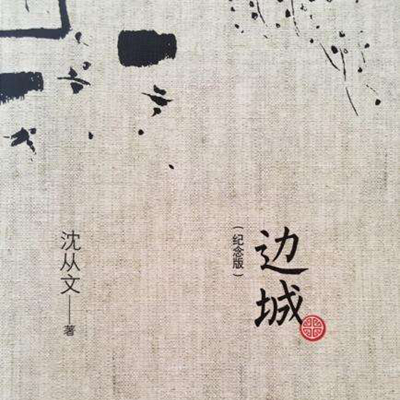 边城
（纪念版）
沈从文——著